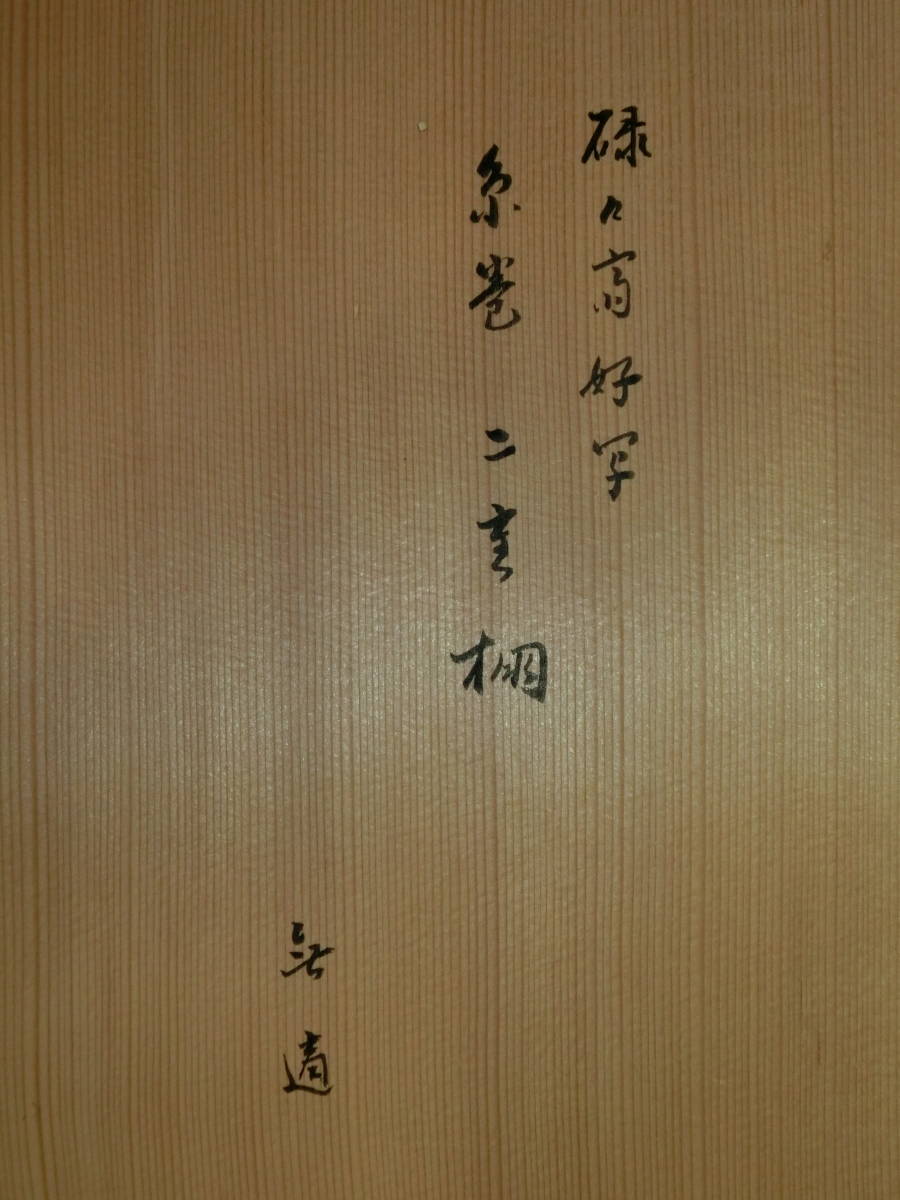 碌々斎好写
糸巻 二重棚
無適